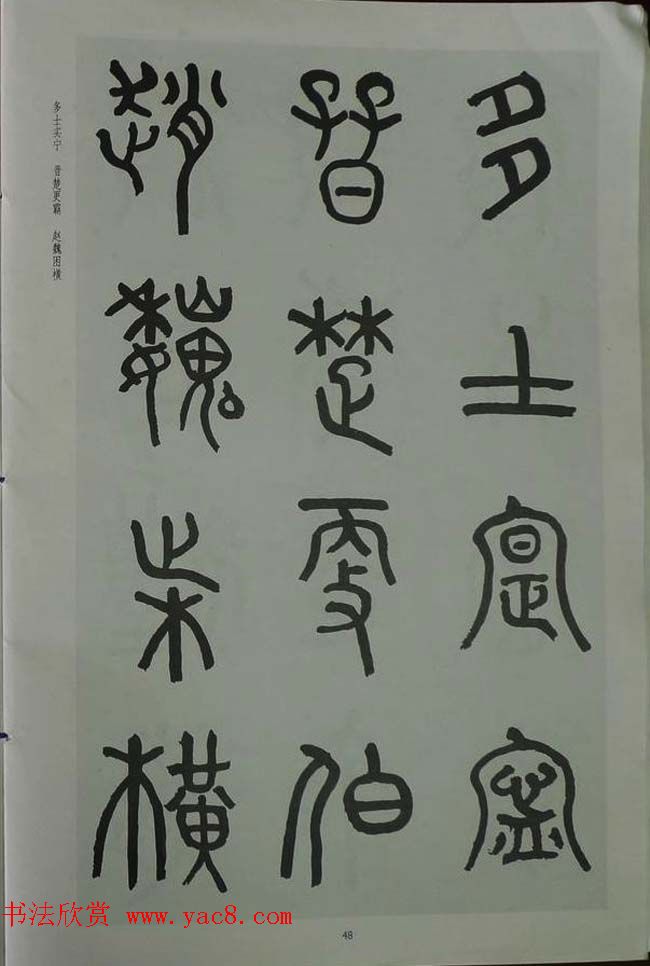 多士寔寧
晉楚更伯
趙魏困橫
多士实宁 晋楚更霸 赵魏困横
48
书法欣赏 www.yac8.com